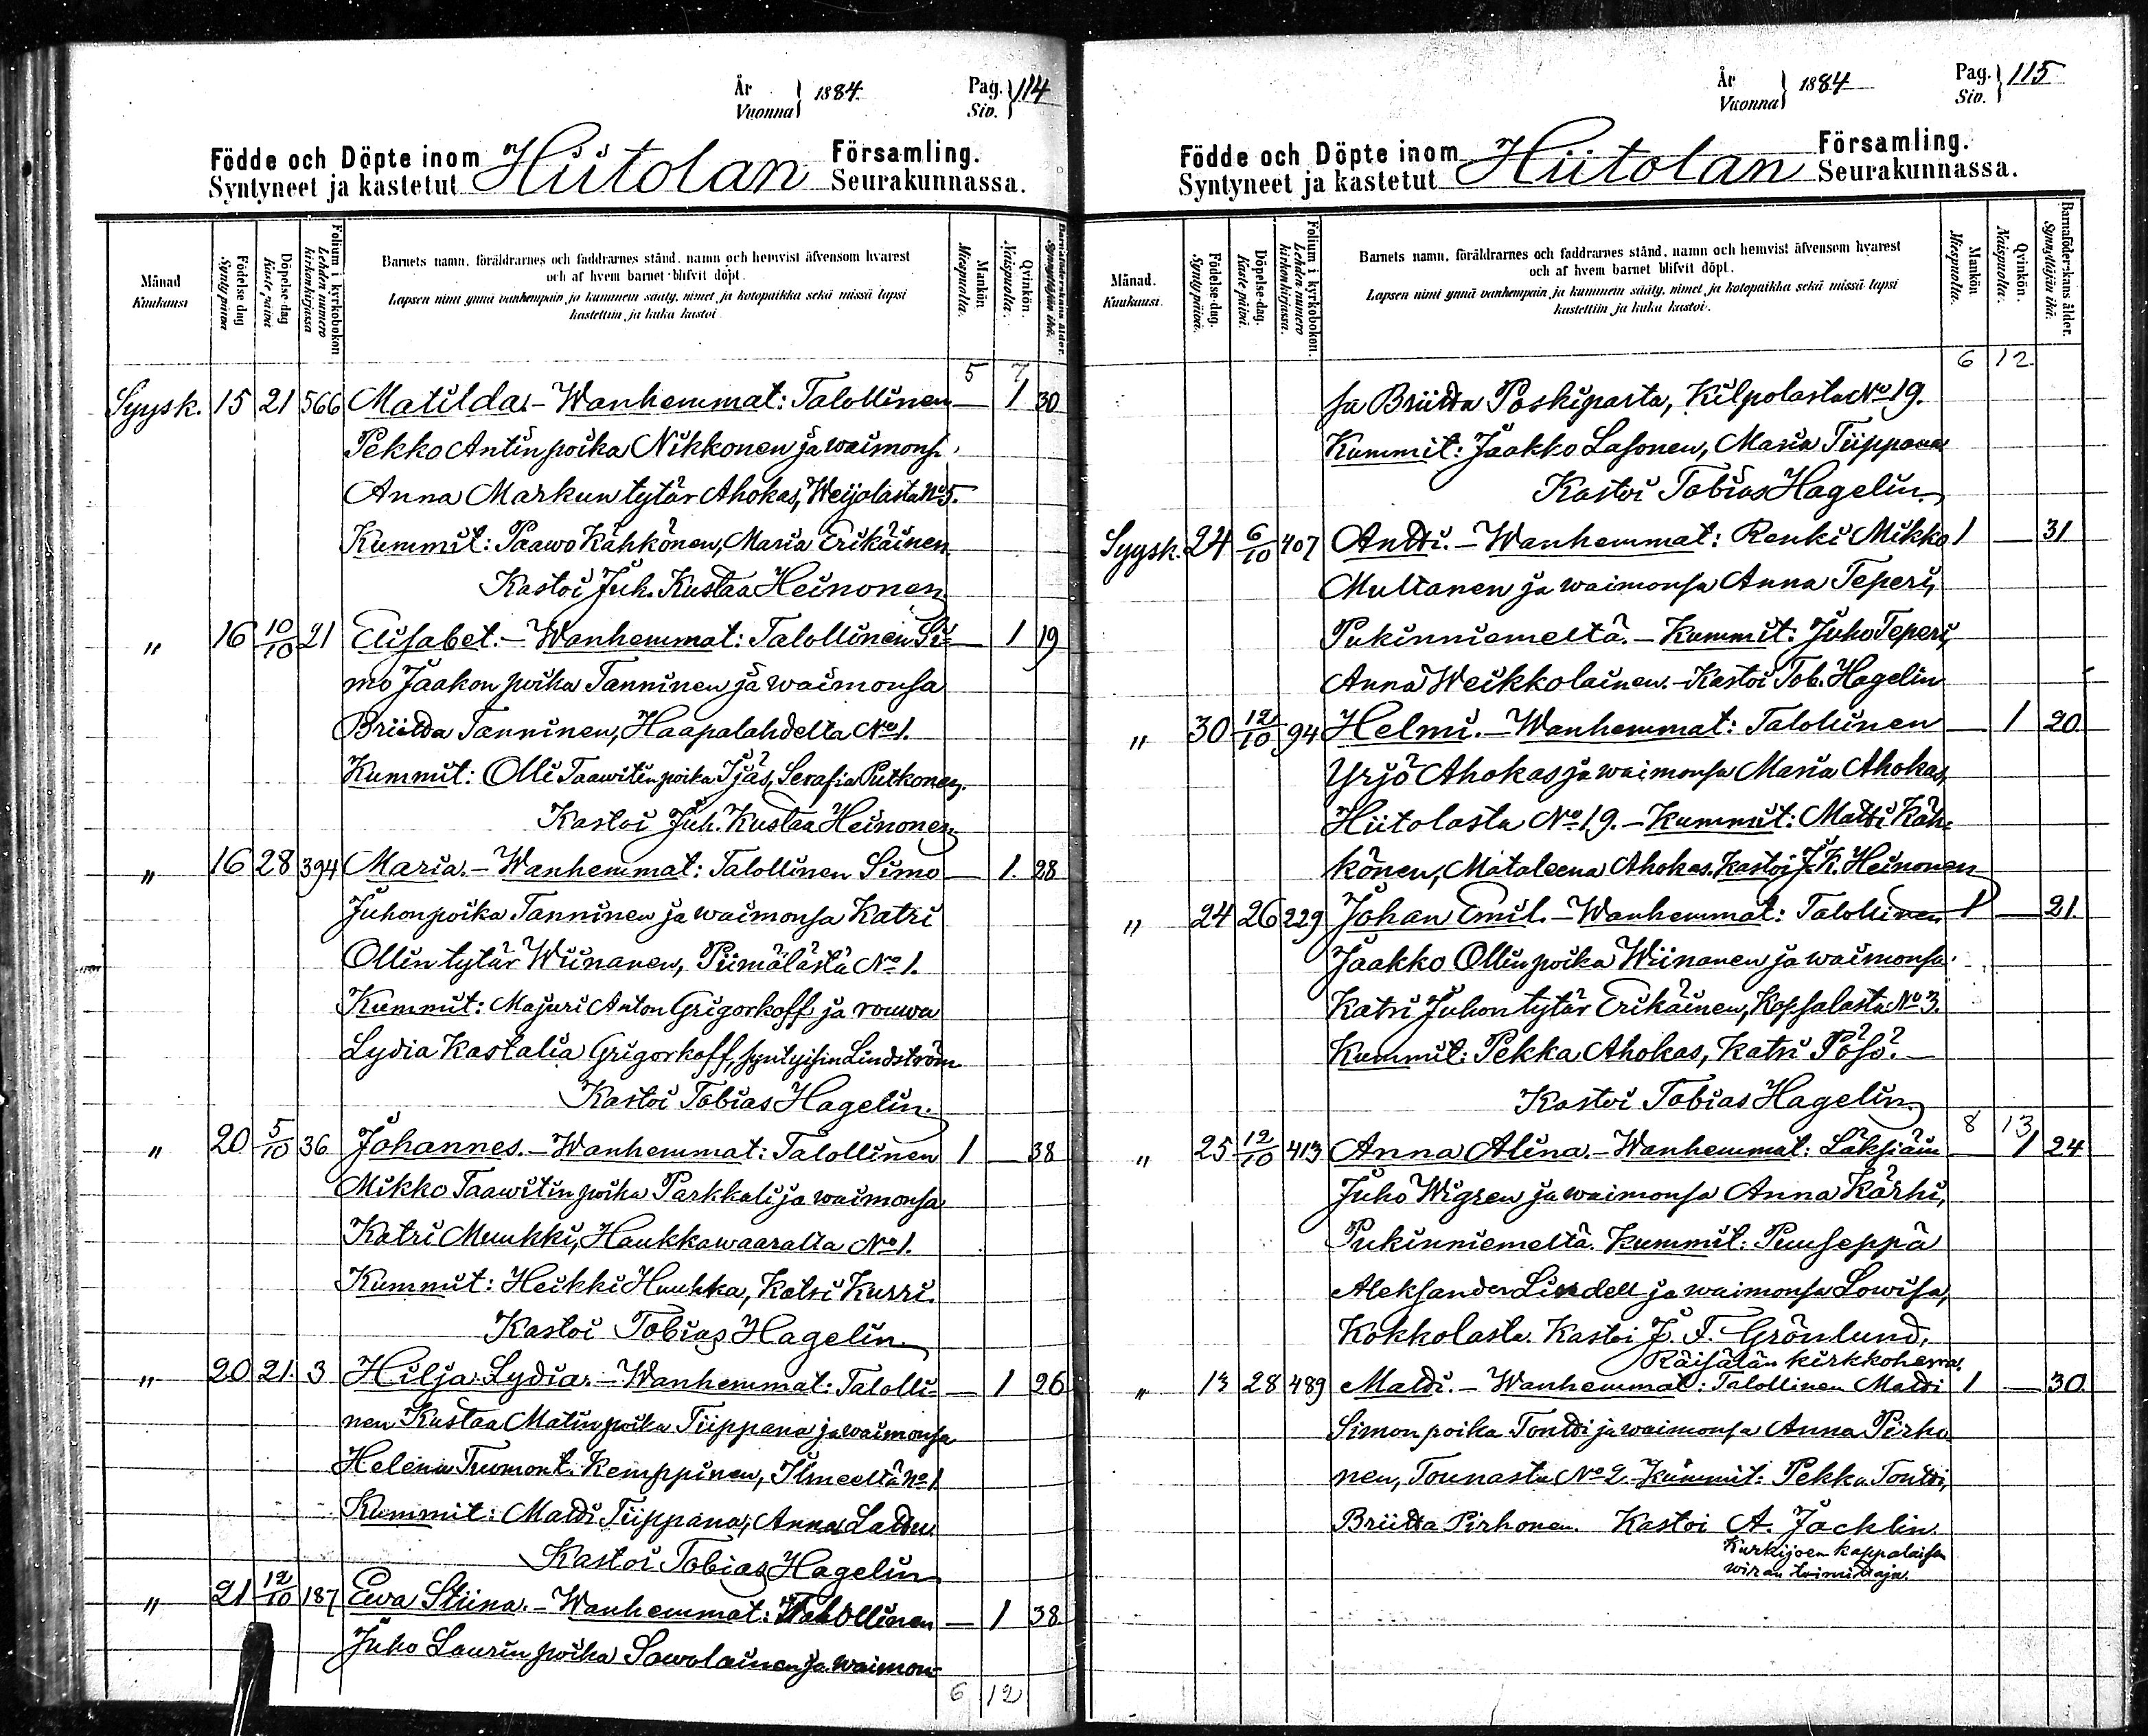 År
Vuonna } 1884.
Pag.
Siv. } 114
Födde och Döpte inom Hiitolan Församling.
Syntyneet ja kastetut Seurakunnassa.
Månad
Kuukausi
Födelse-dag
Synty päivä
Döpelse-dag
Kaste päivä
Folium i kyrkoboken
Lehden numero kirkonkirjassa
Barnets namn, föräldrarnes och faddrarnes stånd, namn och hemvist äfvensom hvarest
och af hvem barnet blifvit döpt.
Lapsen nimi ynnä vanhempain ja kummein sääty, nimet ja kotopaikka sekä missä lapsi
kastettiin ja kuka kastoi
Mankön
Miespuolta.
Qvinkön.
Naispuolta.
Barnaföderskans ålder.
Synnyttäjän ikä.
5 7
Syysk. 15 21 566 Matilda. – Wanhemmat: Talollinen — 1 30
Pekko Antin poika Nikkonen ja waimonsa
Anna Markun tytär Ahokas, Weijolasta No 5.
Kummit: Paawo Kähkönen, Maria Erikäinen
Kastoi Juh. Kustaa Heinonen
" 16 10/10 21 Elisabet. – Wanhemmat: Talollinen Si= — 1 19
mo Jaakon poika Tanninen ja waimonsa
Briitta Tanninen, Haapalahdelta No 1.
Kummit: Olli Taawitin poika Ijäs, Serafia Putkonen.
Kastoi Juh. Kustaa Heinonen
" 16 28 394 Maria. – Wanhemmat: Talollinen Simo — 1. 28
Juhonpoika Tanninen ja waimonsa Katri
Ollin tytär Wiinanen, Piimälästä No 1.
Kummit: Majuri Anton Grigorkoff ja rouwa
Lydia Kastalia Grigorkoff, syntyisin Lindström
Kastoi Tobias Hagelin.
" 20 5/10 36 Johannes. – Wanhemmat: Talollinen 1 — 38
Mikko Taawitin poika Parkkali ja waimonsa
Katri Muukki, Haukkawaaralta No 1.
Kummit: Heikki Huuhka, Katri Kurri.
Kastoi Tobias Hagelin.
" 20 21. 3 Hilja Lydia. – Wanhemmat: Talolli= — 1 26
nen Kustaa Matinpoika Tiippana ja waimonsa
Helena Tuomont. Kemppinen, Ilmeeltä No 1
Kummit: Matti Tiippana, Anna Lattu
Kastoi Tobias Hagelin
" 21 12/10 187 Ewa Stiina. – Wanhemmat: Talollinen — 1 38
Juho Laurin poika Sawolainen ja waimon=
6 12
År
Vuonna } 1884
Pag.
Siv. } 115
Födde och Döpte inom Hiitolan Församling.
Syntyneet ja kastetut Seurakunnassa.
Månad.
Kuukausi.
Födelse-dag.
Synty päivä.
Döpelse-dag.
Kaste päivä.
Folium i kyrkoboken.
Lehden numero kirkonkirjassa.
Barnets namn, föräldrarnes och faddrarnes stånd, namn och hemvist äfvensom hvarest
och af hvem barnet blifvit döpt.
Lapsen nimi ynnä vanhempain ja kummein sääty, nimet ja kotopaikka sekä missä lapsi
kastettiin ja kuka kastoi.
Mankön
Miespuolta.
Qvinkön.
Naispuolta.
Barnaföderskans ålder.
Synnyttäjän ikä.
6 12
sa Briitta Poskiparta, Kilpolasta No 19.
Kummit: Jaakko Lasonen, Maria Tiippana
Kastoi Tobias Hagelin.
Syysk. 24 6/10 407 Antti. – Wanhemmat: Renki Mikko 1 — 31
Multanen ja waimonsa Anna Teperi,
Pukinniemeltä. – Kummit: Juho Teperi,
Anna Weikkolainen. – Kastoi Tob. Hagelin
" 30 12/10 94 Helmi. – Wanhemmat: Talollinen — 1 20
Yrjö Ahokas ja waimonsa Maria Ahokas,
Hiitolasta No 19. – Kummit: Matti Käh=
könen, Mataleena Ahokas. Kastoi J. K. Heinonen
" 24 26 229 Johan Emil. – Wanhemmat: Talollinen 1 — 21.
Jaakko Ollin poika Wiinanen ja waimonsa
Katri Juhon tytär Erikäinen, Kopsalasta No 3.
Kummit: Pekka Ahokas, Katri Pösö. —
Kastoi Tobias Hagelin.
8 13
" 25 12/10 413 Anna Alina. – Wanhemmat: Läksiäin — 1 24
Juho Wigren ja waimonsa Anna Kärhi,
Pukinniemeltä. Kummit: Puuseppä
Aleksander Lindell ja waimonsa Lowisa,
Kokkolasta. Kastoi J. F. Grönlund,
Räisälän kirkkoherra.
" 13 28 489 Matti. – Wanhemmat: Talollinen Matti 1 — 30
Simon poika Tontti ja waimonsa Anna Pirho
nen, Tounasta No 2. Kummit: Pekka Tontti,
Briitta Pirhonen. Kastoi A. Jacklin.
Kurkijoen kappalaisen
wiran toimittaja.